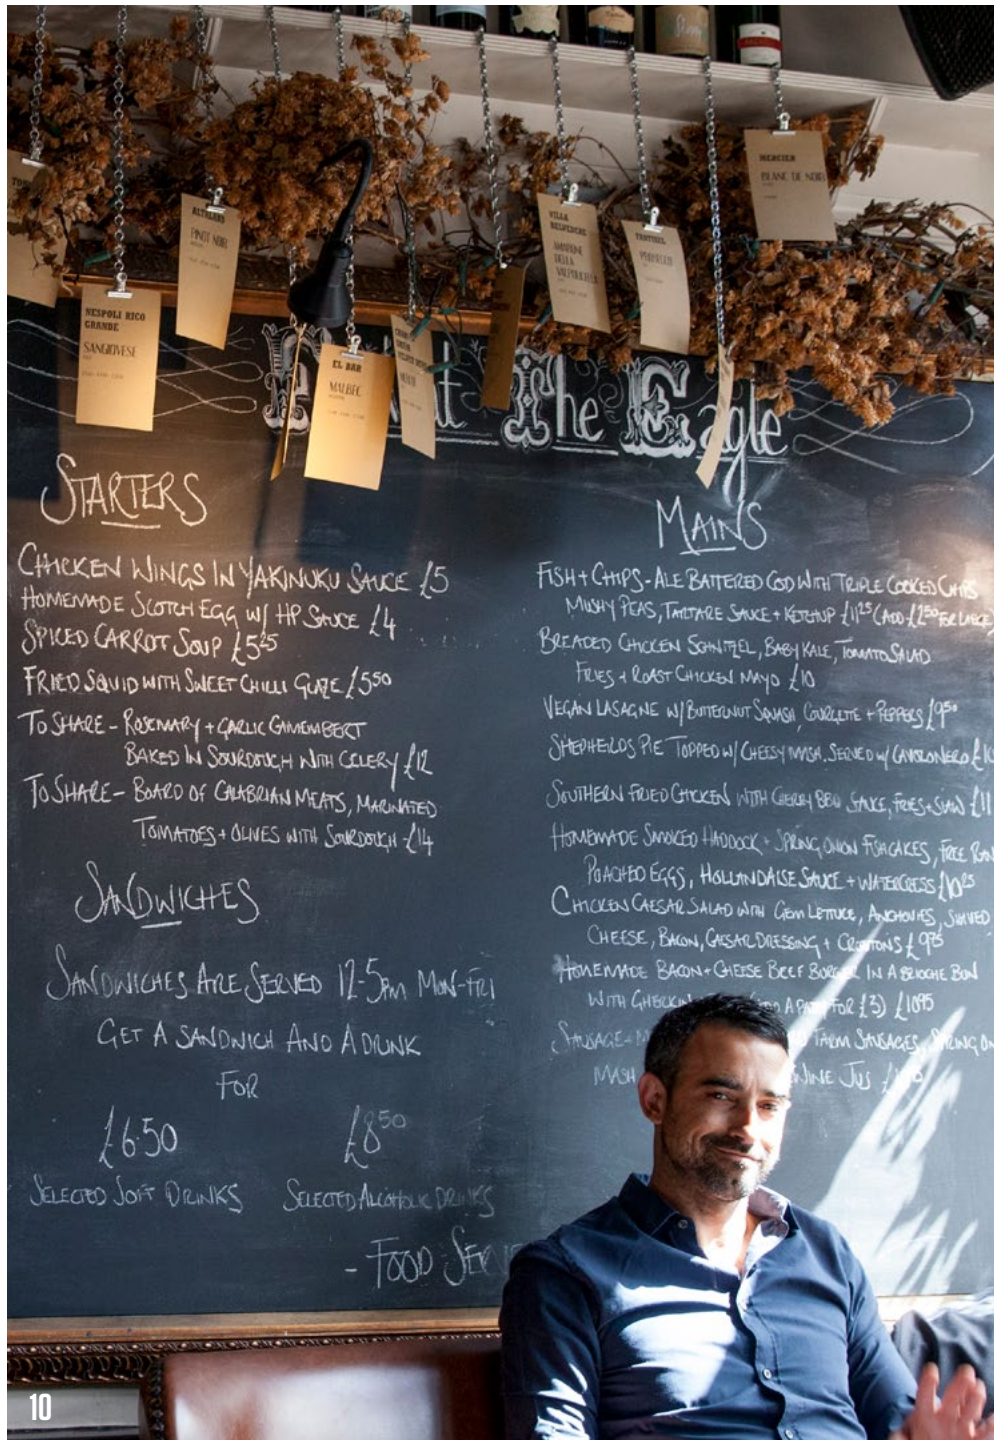 MERCIER
BLANC DE NOIR
ALTALAND
PINOT NOIR
VILLA
BELVEDERE
AMARONE
DELLA
VALPOLICELLA
PROSECCO
NESPOLI RICO
GRANDE
SANGIOVESE
EL BAR
MALBEC
The Eagle
STARTERS
CHICKEN WINGS IN YAKINUKU SAUCE £5
HOMEMADE SCOTCH EGG W/ HP SAUCE £4
SPICED CARROT SOUP £5.25
FRIED SQUID WITH SWEET CHILLI GLAZE £5.50
TO SHARE - ROSEMARY + GARLIC CAMEMBERT
BAKED IN SOURDOUGH WITH CELERY £12
TO SHARE - BOARD OF CALABRIAN MEATS, MARINATED
TOMATOES + OLIVES WITH SOURDOUGH - £14
SANDWICHES
SANDWICHES ARE SERVED 12-5PM MON-FRI
GET A SANDWICH AND A DRINK
FOR
£6.50 £8.50
SELECTED SOFT DRINKS SELECTED ALCOHOLIC DRINKS
- FOOD SERV
MAINS
FISH + CHIPS - ALE BATTERED COD WITH TRIPLE COOKED CHIPS
MUSHY PEAS, TARTARE SAUCE + KETCHUP £11.25 (ADD £2.50 FOR LARGE)
BREADED CHICKEN SCHNITZEL, BABY KALE, TOMATO SALAD
FRIES + ROAST CHICKEN MAYO £10
VEGAN LASAGNE W/ BUTTERNUT SQUASH COURGETTE + PEPPERS £9.50
SHEPHERDS PIE TOPPED W/ CHEESY MASH. SERVED W/ CAVOLO NERO
SOUTHERN FRIED CHICKEN WITH CHERRY BBQ SAUCE, FRIES + SLAW £11
HOMEMADE SMOKED HADDOCK + SPRING ONION FISHCAKES, FREE RAN
POACHED EGGS, HOLLANDAISE SAUCE + WATERCRESS £10.25
CHICKEN CAESAR SALAD WITH GEM LETTUCE, ANCHOVIES, SHAVED
CHEESE, BACON, CAESAR DRESSING + CROUTONS £9.75
HOMEMADE BACON + CHEESE BEEF BURGER IN A BRIOCHE BUN
WITH GHERKIN A PATTY FOR £3) £10.95
SAUSAGE + FARM SAUSAGES, SPRING ON
MASH WINE JUS
10